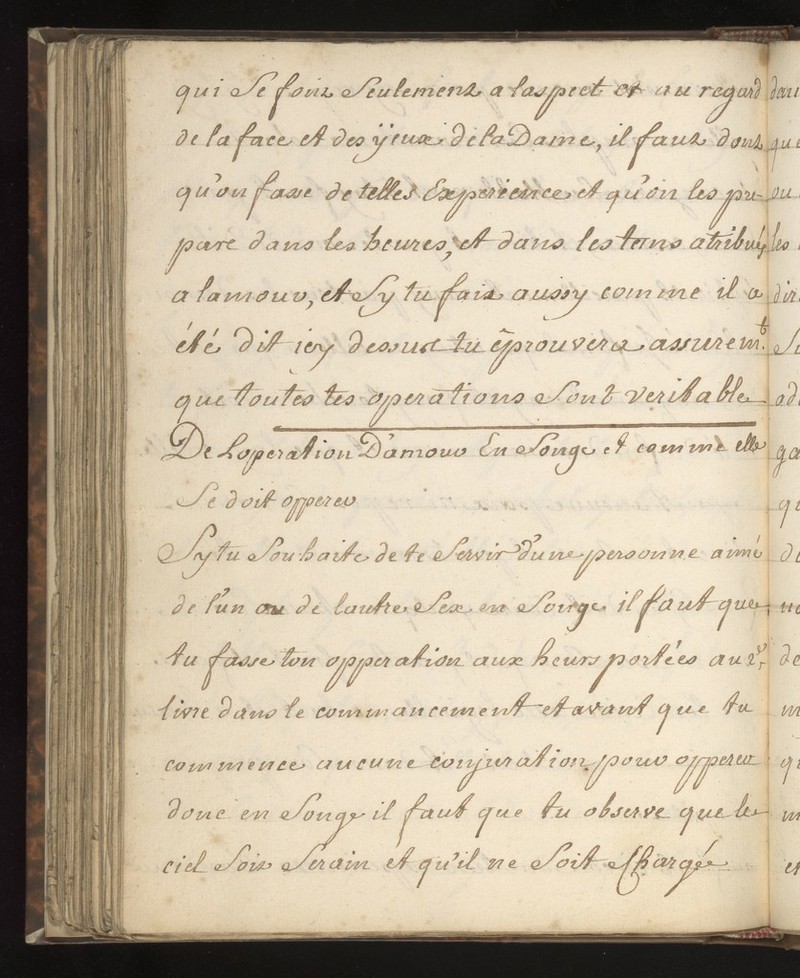 qui Se font Seulement a laspect et au regard
de la face et des ÿeux de la Dame, il faut dont
qu'on fasse de telles Experience et qu'on les pre-
pare dans les heures, et dans les tems atribuéz
a lamour, et Sy tu fais aussy comme il a
été dit icy dessus tu éprouvera assurem.t
que toutes tes operations Sont veritable
De Loperation D'amour En Songe et comme elle
Se doit opperer
Sy tu Souhaite de te Servir d'une personne aimé
de l'un ou de lautre Sex en Songe il faut que
tu fasse ton opperation aux heurs portées au 2.e
livre dans le commancement et avant que tu
commence aucune conjuration pour opperer
donc en Songe il faut que tu observe que le
ciel Soit Serain et qu'il ne Soit Chargée